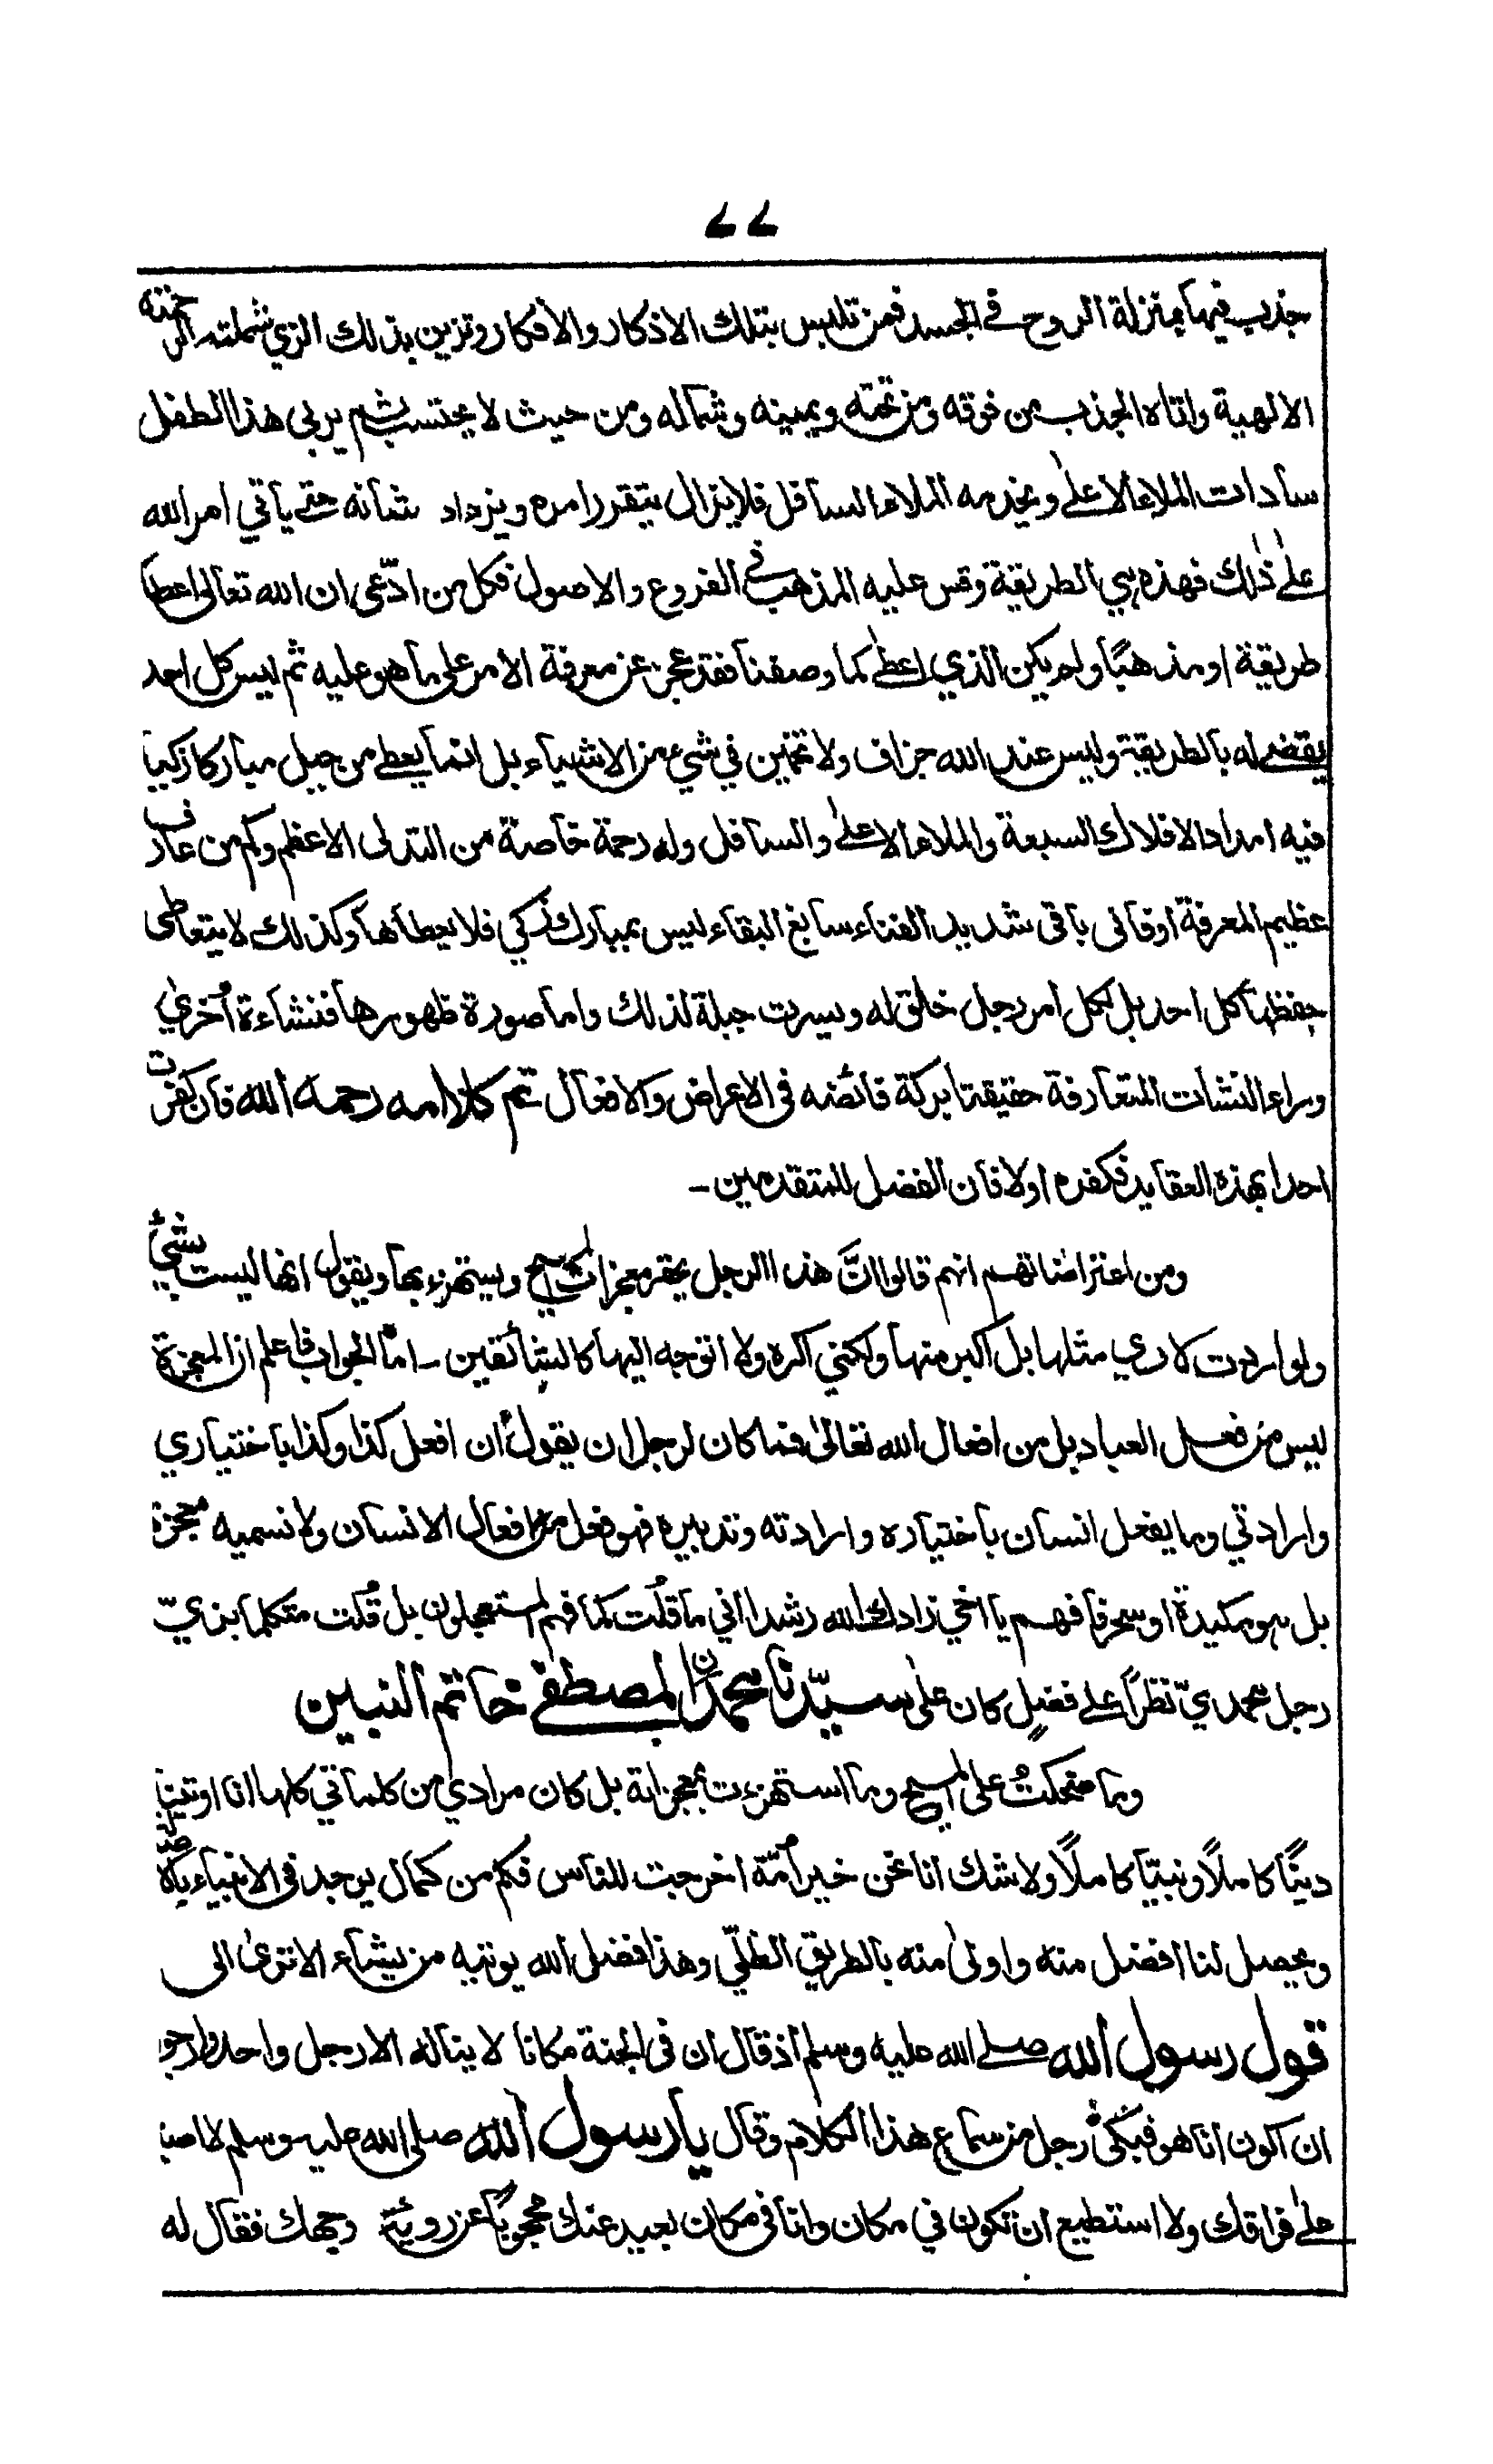 ۷۷
جذب فيها بمنزلة الروح في الجسد فمن تلبس بتلك الاذكار والافكار وتزين بذلك الزي شملته الرحمته
الالهية واتاه الجذب من فوقه ومن تحته ويمينه وشماله ومن حيث لا يحتسب ثم يربى هذا الطفل
سادات الملاء الاعلى ويخدمه الملاء السافل فلا يزال يتقرر امره ويزداد شانه حتے ياتي امر الله
علىٰ ذٰلك فهذه هي الطريقة وقس عليه المذهب في الفروع والاصول فكل من ادّعى ان الله تعالى اعطا
طريقة او مذهبًا ولم يكن الذي اعطےٰ كما وصفنا فقد عجز عن معرفة الامر على ما هو عليه ثم ليس كل احد
يقضے له بالطريقة وليس عند الله جزاف ولا تخمين في شيء من الاشياء بل انما يعطے من جبل مباركا زكيا
فيه امداد الافلاك السبعة والملاء الاعلےٰ والسافل وله رحمة خاصة من التدلى الاعظم وكم من عارف
عظيم المعرفة اوفانى باقى شديد الفناء سابغ البقاء ليس بمبارك زكي فلا يعطاها وكذلك لا يتعاطى
حفظها كل احد بل لكل امر رجل خلق له ويسرت جبلة لذلك واما صورة ظهورها فنشاءة اُخرىٰ
وراء النشات المتعارفة حقيقتها بركة فائضه فى الاعراض والافعال تم كلامه رحمه الله فان كفرت
احدا بهذه العقايد فكفره اولا فان الفضل للمتقدمين ۔
ومن اعتراضاتهم انهم قالوا انَّ هذا الرجل يحقر معجزات المسيح ويستهزء بها ويقول انها ليست بشيئ
ولو اردت لاري مثلها بل اكبر منها ولكني اكره ولا اتوجه اليها كالشائقين ۔ امّا الجواب فاعلم ان المعجزة
ليس من فعل العباد بل من افعال الله تعالىٰ فما كان لرجل ان يقول ان افعل كذا وكذا باختياري
وارادتي وما يفعل انسان باختياره وارادته وتدبيره فهو فعل من افعال الانسان ولا نسميه معجزة
بل هو مكيدة او سحر فافهم يا اخي زادك الله رشدا اني ما قلت كما فهم المستعجلون بل قُلت متكلما بزيّ
رجل محمديّ نظرًا على فضل كان علىٰ سيّدنا محمدنِ المصطفے خاتم النبين
وما ضحكتُ على المسيح وما استهزءت بمعجزاته بل كان مرادي من كلماتي كلها انا اوتينا
دينًا كاملًا ونبيّا كاملًا ولا شك انا نحن خير اُمّة اخرجت للناس فكم من كمال يوجد فى الانبياء بالاصالة
ويحصل لنا افضل منه واولىٰ منه بالطريق الظلّي وهذا فضل الله يوتيه من يشاء الا ترىٰ الى
قول رسول الله صلے الله عليه وسلم اذ قال ان فى الجنة مكانا لا يناله الا رجل واحد وارجو
ان اكون انا هو فبكىٰ رجل من سماع هذا الكلام وقال يا رسول الله صلى الله عليه وسلم لا اصبا
علےٰ فراقك ولا استطيع ان تكون في مكان وانا فى مكان بعيد عنك محجوبًا عن روئية وجهك فقال له